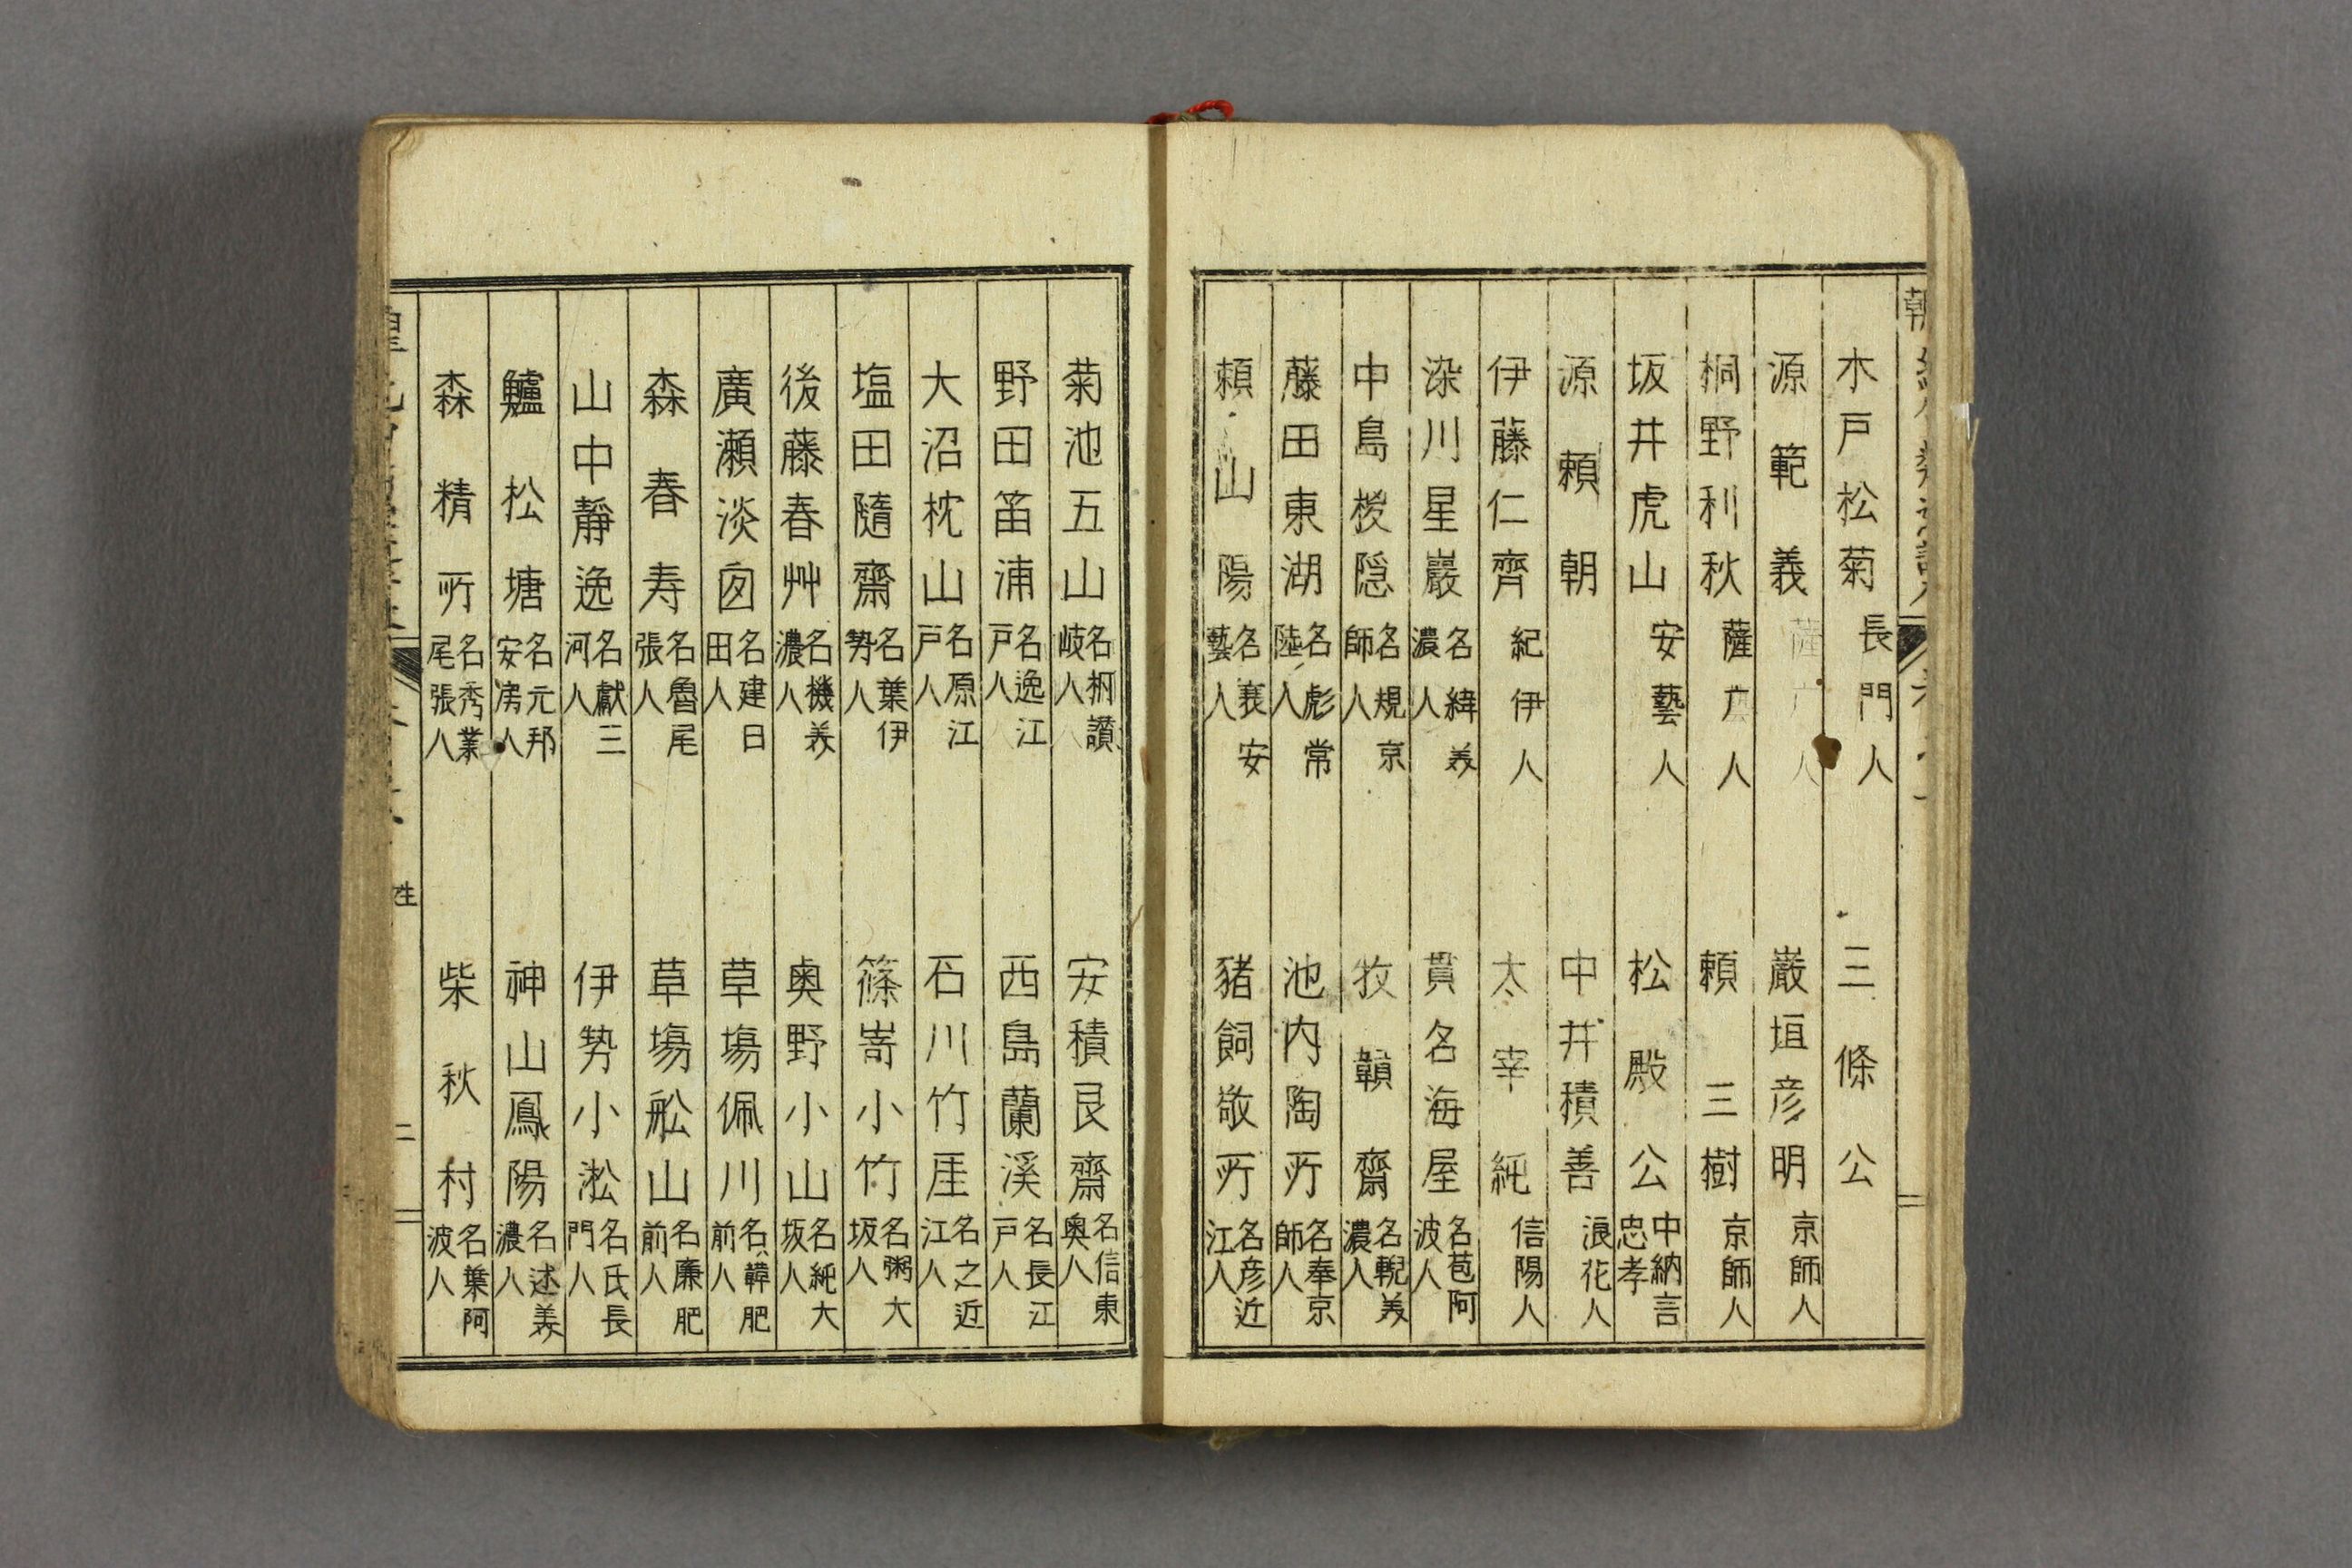 木戸松菊 長門人 三條公
源範義 薩广人 巌垣彦明 京師人
桐野利秋 薩广人 頼三樹 京師人
坂井虎山 安藝人 松殿公 中納言忠孝
源頼朝 中井積善 浪花人
伊藤仁齊 紀伊人 太宰純 信陽人
梁川星巖 名緯美濃人 貫名海屋 名苞阿波人
中島椶隠 名規京師人 牧韻齋 名輗美濃人
藤田東湖 名彪常陸人 池内陶所 名奉京師人
頼山陽 名襄安藝人 猪飼敬所 名彦近江人
菊池五山 名桐讃岐人 安積艮齋 名信東奥人
野田笛浦 名逸江戸人 西島蘭溪 名長江戸人
大沼枕山 名原江戸人 石川竹厓 名之近江人
塩田隨齋 名葉伊勢人 篠嵜小竹 名弼大坂人
後藤春艸 名機美濃人 奥野小山 名純大坂人
廣瀬淡窗 名建日田人 草場佩川 名韡肥前人
森春寿 名魯尾張人 草場舩山 名廉肥前人
山中靜逸 名獻三河人 伊勢小淞 名氏長門人
鱸松塘 名元邦安房人 神山鳳陽 名述美濃人
森精所 名秀業尾張人 柴秋村 名葉阿波人
姓 二